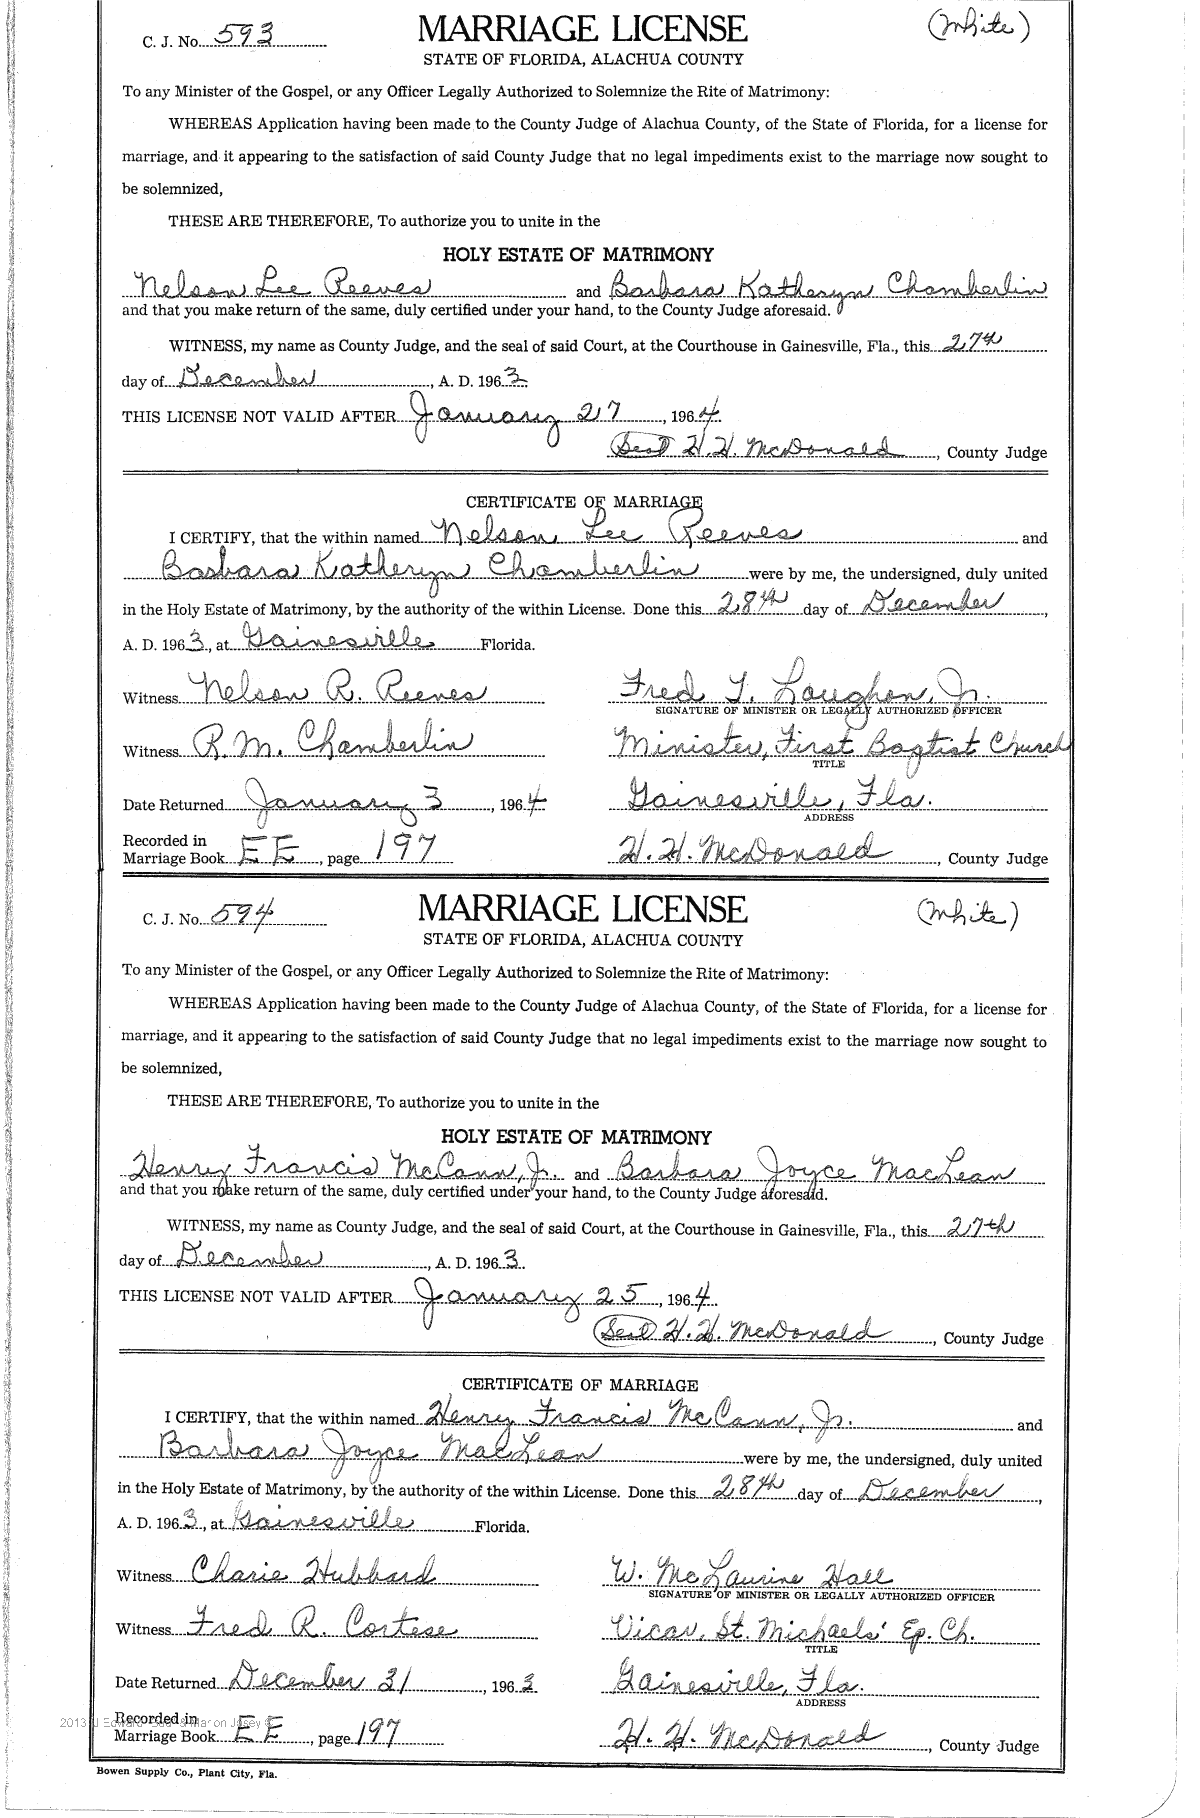 C. J. No. 593 MARRIAGE LICENSE (White)
STATE OF FLORIDA, ALACHUA COUNTY
To any Minister of the Gospel, or any Officer Legally Authorized to Solemnize the Rite of Matrimony:
WHEREAS Application having been made to the County Judge of Alachua County, of the State of Florida, for a license for
marriage, and it appearing to the satisfaction of said County Judge that no legal impediments exist to the marriage now sought to
be solemnized,
THESE ARE THEREFORE, To authorize you to unite in the
HOLY ESTATE OF MATRIMONY
Nelson Lee Reeves and Barbara Katheryn Chamberlin
and that you make return of the same, duly certified under your hand, to the County Judge aforesaid.
WITNESS, my name as County Judge, and the seal of said Court, at the Courthouse in Gainesville, Fla., this 27th
day of December, A. D. 1963
THIS LICENSE NOT VALID AFTER January 27, 1964
Seal H. H. McDonald, County Judge
CERTIFICATE OF MARRIAGE
I CERTIFY, that the within named Nelson Lee Reeves and
Barbara Katheryn Chamberlin were by me, the undersigned, duly united
in the Holy Estate of Matrimony, by the authority of the within License. Done this 28th day of December,
A. D. 1963, at Gainesville Florida.
Witness Nelson R. Reeves Fred T. Laughon, Jr.
SIGNATURE OF MINISTER OR LEGALLY AUTHORIZED OFFICER
Witness R. M. Chamberlin Minister, First Baptist Church
TITLE
Date Returned January 3, 1964 Gainesville, Fla.
ADDRESS
Recorded in
Marriage Book EE, page 197 H. H. McDonald, County Judge
C. J. No. 594 MARRIAGE LICENSE (White)
STATE OF FLORIDA, ALACHUA COUNTY
To any Minister of the Gospel, or any Officer Legally Authorized to Solemnize the Rite of Matrimony:
WHEREAS Application having been made to the County Judge of Alachua County, of the State of Florida, for a license for
marriage, and it appearing to the satisfaction of said County Judge that no legal impediments exist to the marriage now sought to
be solemnized,
THESE ARE THEREFORE, To authorize you to unite in the
HOLY ESTATE OF MATRIMONY
Henry Francis McCann, Jr. and Barbara Joyce MacLean
and that you make return of the same, duly certified under your hand, to the County Judge aforesaid.
WITNESS, my name as County Judge, and the seal of said Court, at the Courthouse in Gainesville, Fla., this 27th
day of December, A. D. 1963.
THIS LICENSE NOT VALID AFTER January 25, 1964
Seal H. H. McDonald, County Judge
CERTIFICATE OF MARRIAGE
I CERTIFY, that the within named Henry Francis McCann, Jr. and
Barbara Joyce MacLean were by me, the undersigned, duly united
in the Holy Estate of Matrimony, by the authority of the within License. Done this 28th day of December,
A. D. 1963, at Gainesville Florida.
Witness Charie Hubbard W. McLaurine Hall
SIGNATURE OF MINISTER OR LEGALLY AUTHORIZED OFFICER
Witness Fred R. Cortese Vicar, St. Michaels' Ep. Ch.
TITLE
Date Returned December 31, 1963 Gainesville, Fla.
ADDRESS
Recorded in
2013 J Edward
Marriage Book EE, page 197 H. H. McDonald, County Judge
Bowen Supply Co., Plant City, Fla.